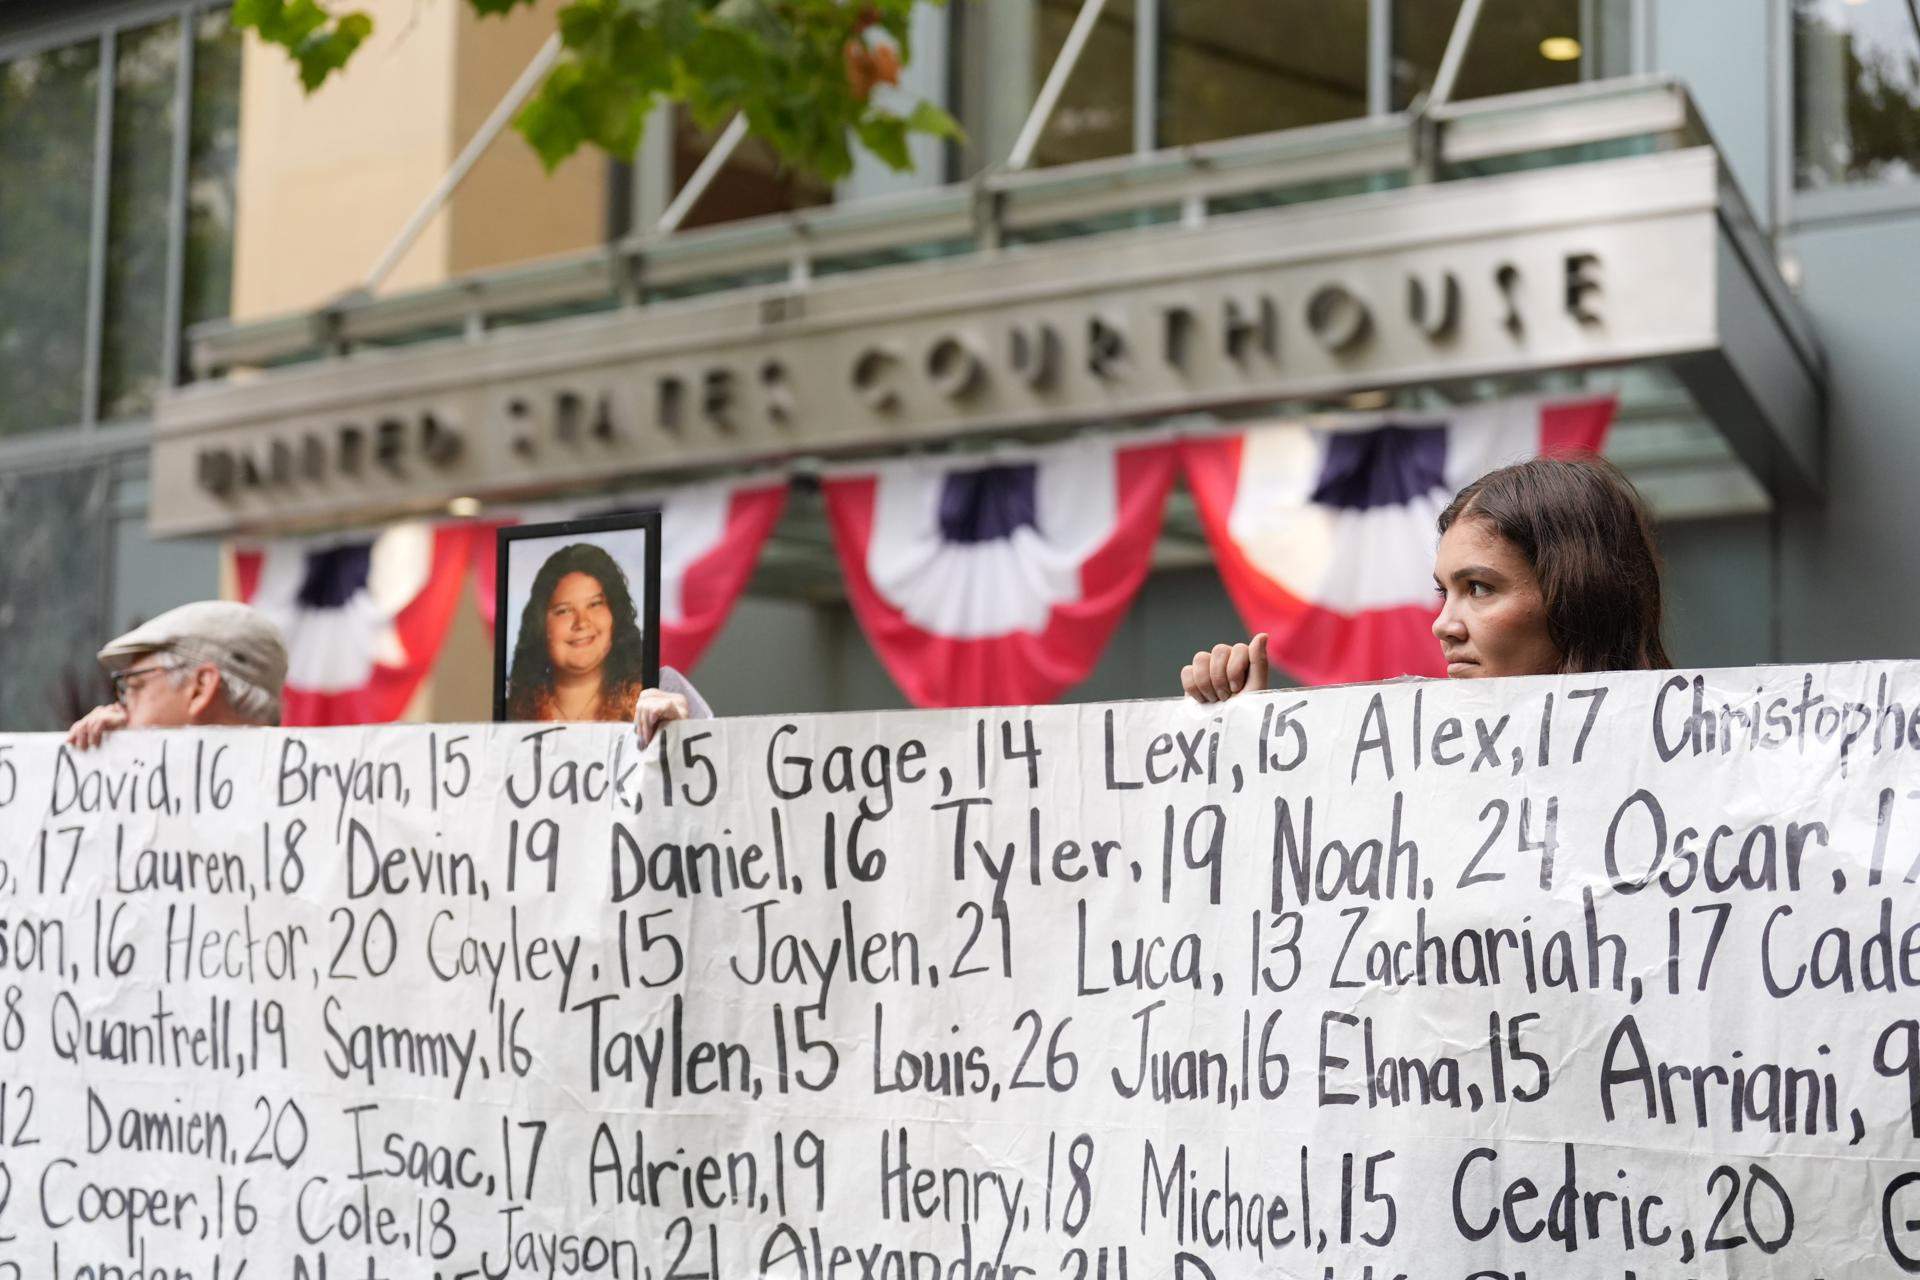 UNITED STATES COURTHOUSE
5 David, 16 Bryan, 15 Jack, 15 Gage, 14 Lexi, 15 Alex, 17 Christophe
, 17 Lauren, 18 Devin, 19 Daniel, 16 Tyler, 19 Noah, 24 Oscar, 17
son, 16 Hector, 20 Cayley, 15 Jaylen, 21 Luca, 13 Zachariah, 17 Cade
8 Quantrell, 19 Sammy, 16 Taylen, 15 Louis, 26 Juan, 16 Elana, 15 Arriani, 9
12 Damien, 20 Isaac, 17 Adrien, 19 Henry, 18 Michael, 15 Cedric, 20
Cooper, 16 Cole, 18 Jayson, 21 Alexander